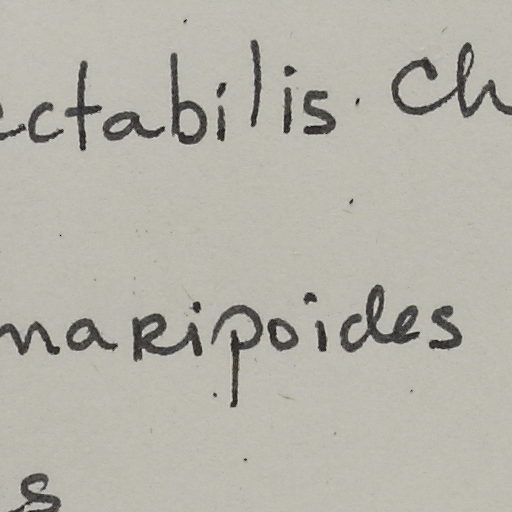 ectabilis. Ch
maripoides
s